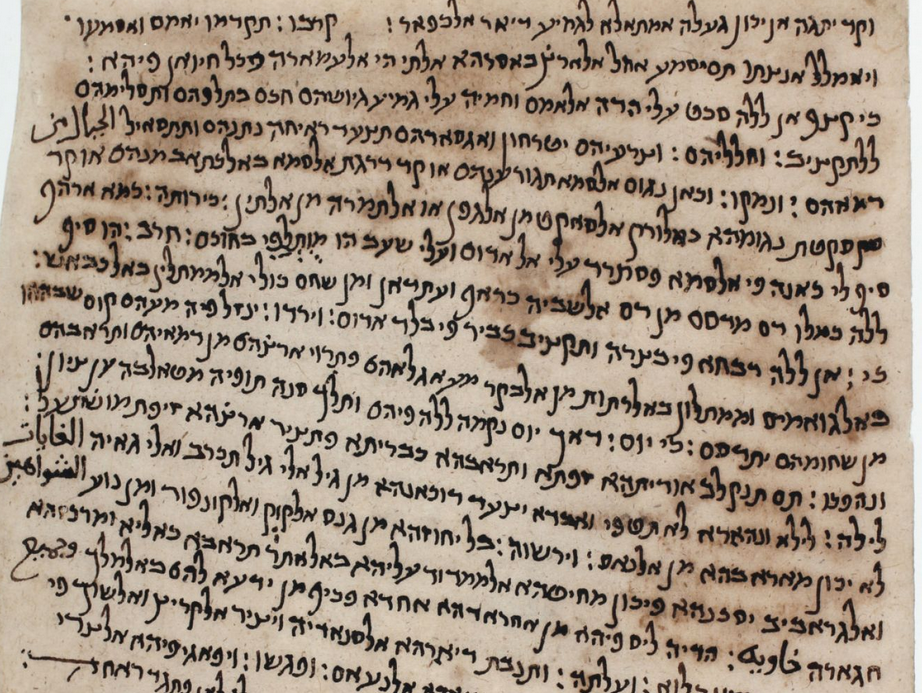 וקד יתגה אן יכון געלה אמתאלא לגמיע דיאר אלכפאר : קרבו : תקדמו יאמם ואסמעו
ויאמלל אנצתו תסיסמע אהל אלארץ באסרהא אלתי הי אלעמארה וכל חיואן פיהא :
כי קצף אן ללה סכט עלי הדה אלאמם וחמיה עלי גמיע גיושהם חכם בתלפהם ותסלימהם
ללתקציב : וחלליהם : וצרעיהם יטרחון ואגסארהם תצעד ראיחה נתנהם ותתסאיל الجبال من
דמאהם : ונמקו : וכאן נגום אלסמא תגור ענהם או קד דרגת אלסמא כאלכתאב מנהם או קד
סקטת נגומהא כאלורק אלסאקט מן אלגפן או אלתמרה מן אלתין : כי רותה : כמא ארהף
סיף לי כאנה פי אלסמא פסתדר עלי אל אדום ועלי שעב הו מותלפי בחוכם : חרב : הו סיף
ללה כמלו דם מדסם מן דם אלשביה כראף ועתדאן ומן שחם כולי אלממתלין באלכבאש :
כי : אן ללה דבחא פי בצרה ותקציב כביר פי בלד אדום : וירדו : ינזל פיה מעהם קום שבההם
באלגואמיס וממתלון באלרתות מן אלבקר מע אגלאהם פתרוי ארצהם מן דמאיהם ותראבהם
מן שחומהם יתדסם : כי יום : דאך יום נקמה ללה פיהם ותלך סנה תופיה מטאלבה ען ציון :
ונהפכו : תם תנקלב אוריתהא זפתא ותראבהא כבריתא פתציר ארצהא זיפת מושתעל :
לילה : לילא ונהארא לא תטפי ואבדא יצעד דוכאנהא מן גיל אלי גיל תכרב ואלי גאיה الغايات
לא יכון מארא בהא מן אלנאס : וירשוה : בל יחוזהא מן גנס אלקוק ואלקונפוד ומן נוע الشواهين
ואלגראביב יסכנהא פיכון מחיטהא אלממדוד עליהא באלאתר תראבא כאליא ומרכזהא
חגארה خاوية : חריה ליס פיהא מן אחראדהא אחדא פכיף מן ידעא להם באלמלך
בלוא : ועלתה : ותנבת דיארהא אלסנאדיה ויציר אלקריץ ואלשוך פי
אלנעאם : ופגשו : ויפאגי פיהא אלצדי